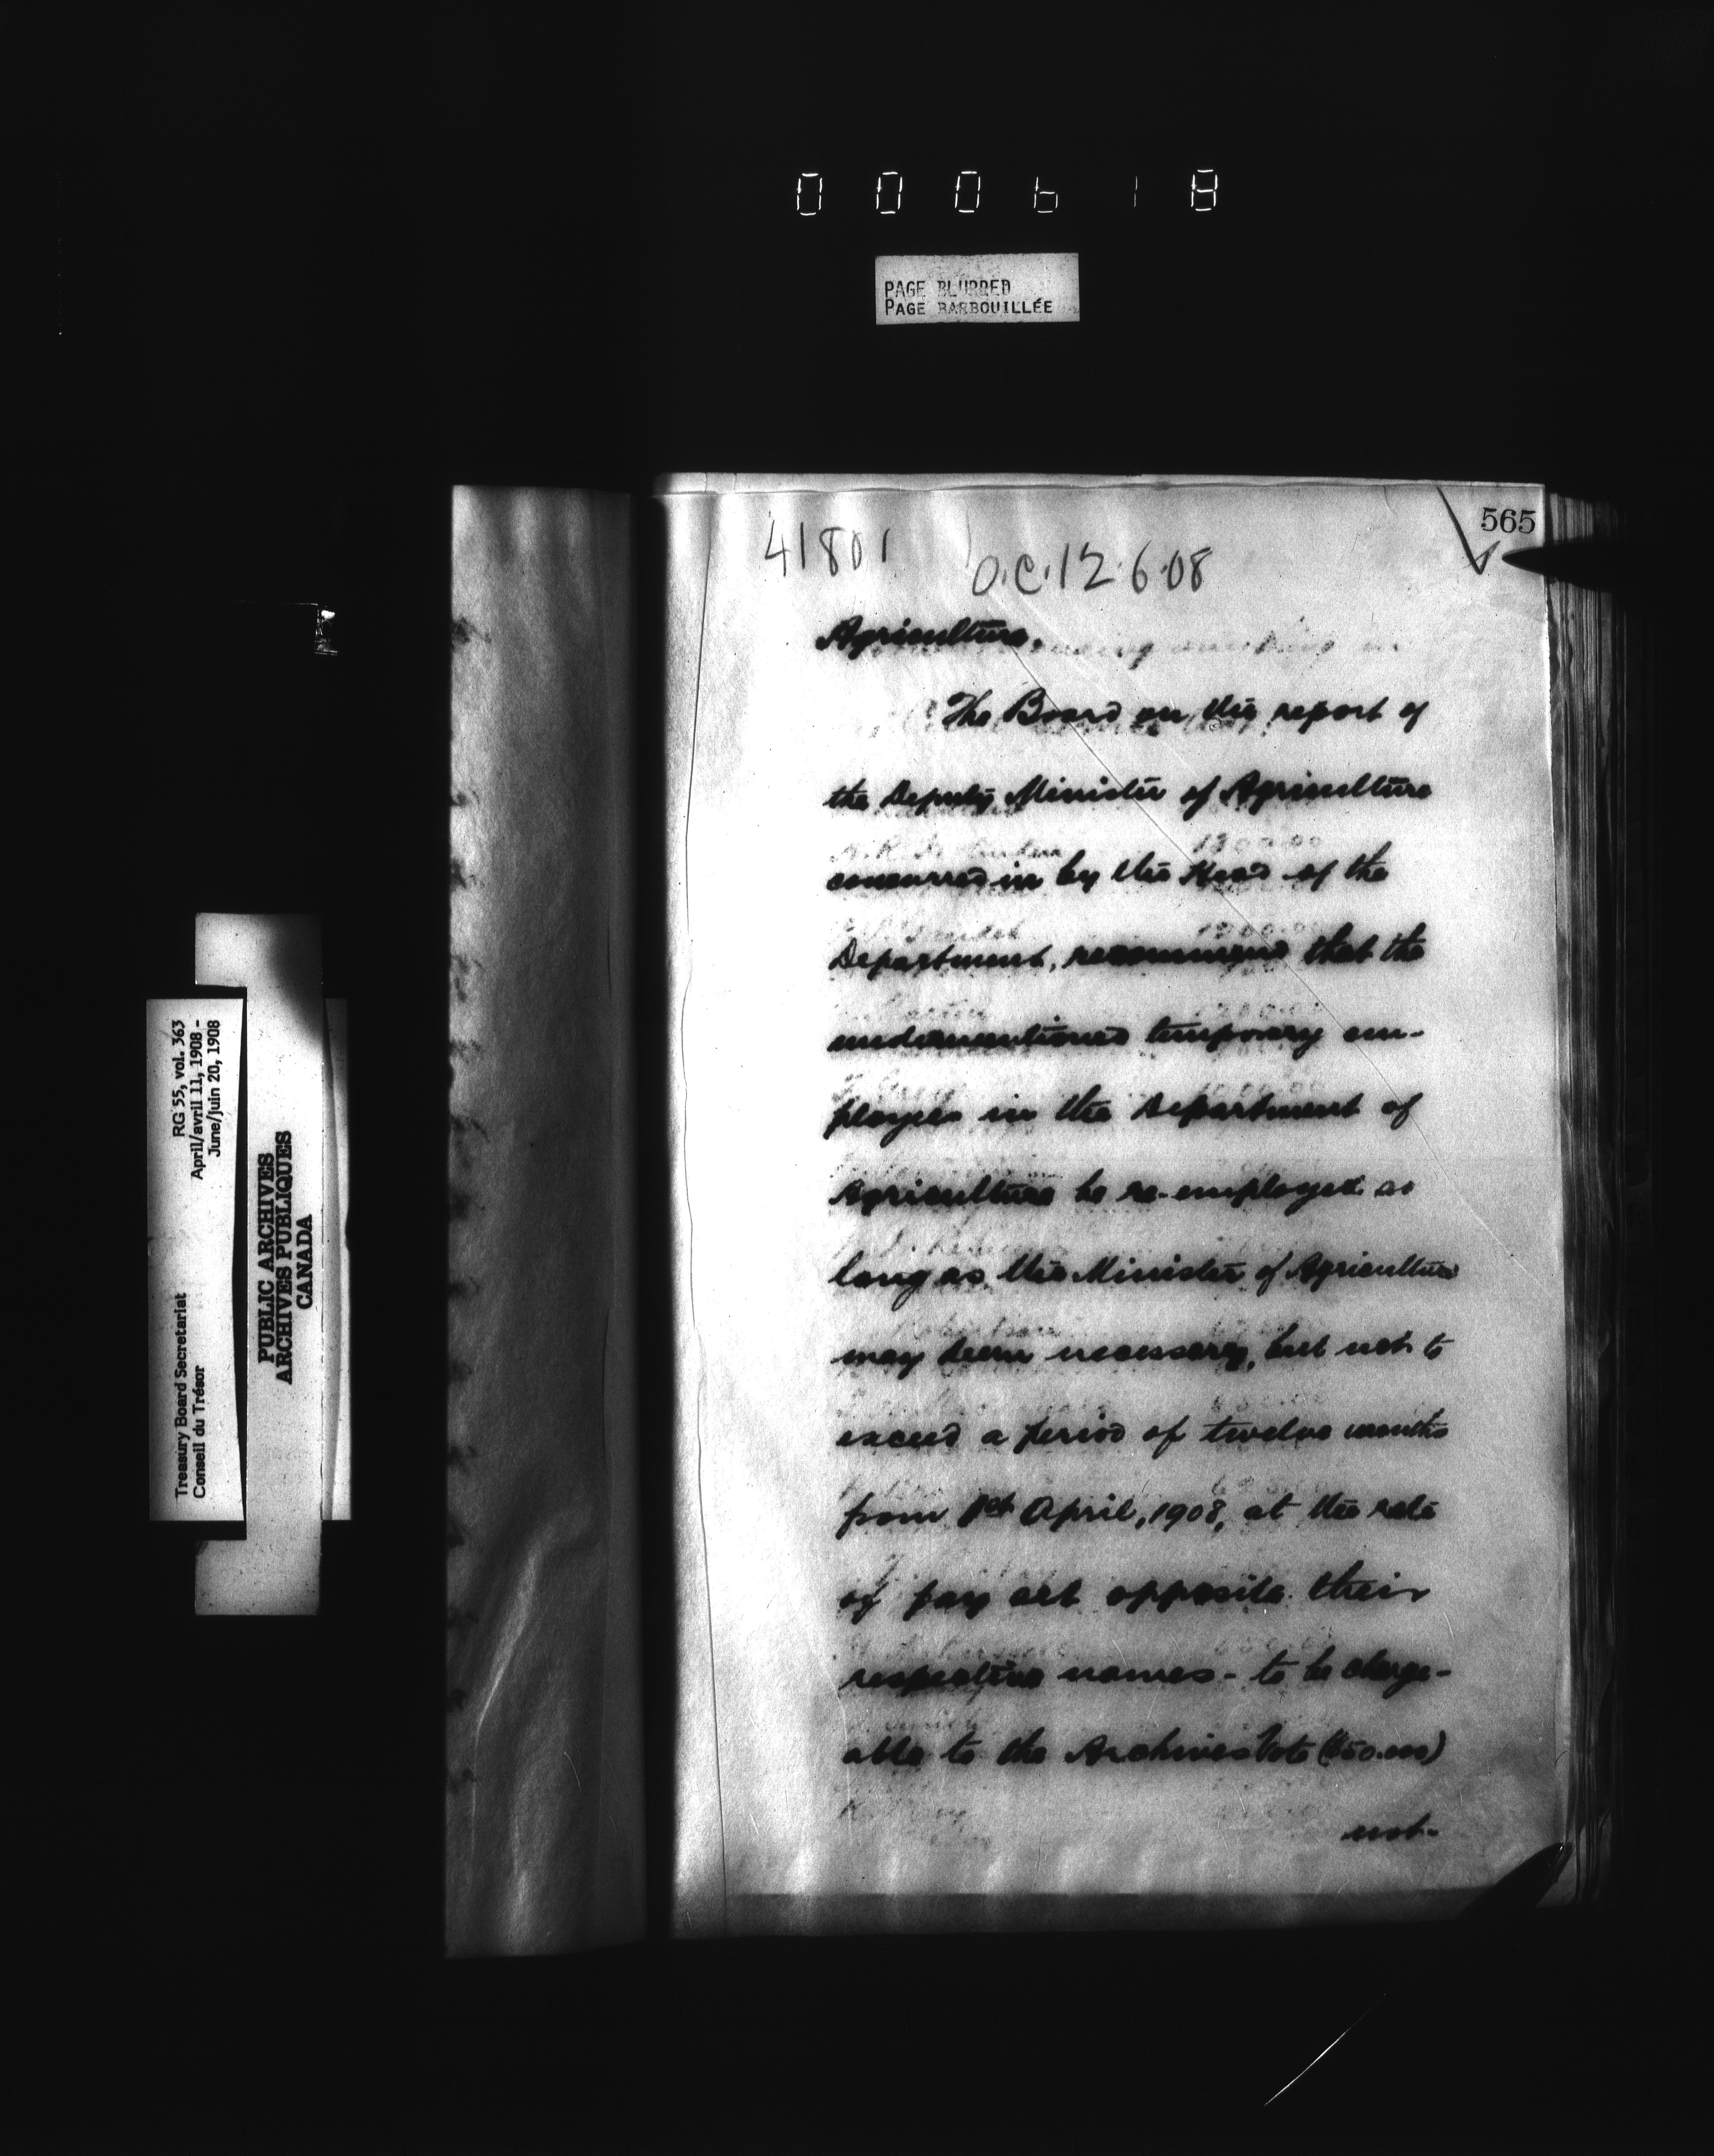 000618
PAGE BLURRED
PAGE BARBOUILLÉE
565
41801
O.C. 12.6.08
Agriculture.
The Board on the report of
the Deputy Minister of Agriculture
concurred in by the Head of the
Department, recommend that the
undermentioned temporary em-
ployees in the Department of
Agriculture be re-employed as
long as the Minister of Agriculture
may deem necessary, but not to
exceed a period of twelve months
from 1st April, 1908, at the rate
of pay set opposite their
respective names - to be charge-
able to the Archives Vote ($50.000)
not-
RG 55, vol. 363
April/avril 11, 1908 -
June/juin 20, 1908
Treasury Board Secretariat
Conseil du Trésor
PUBLIC ARCHIVES
ARCHIVES PUBLIQUES
CANADA